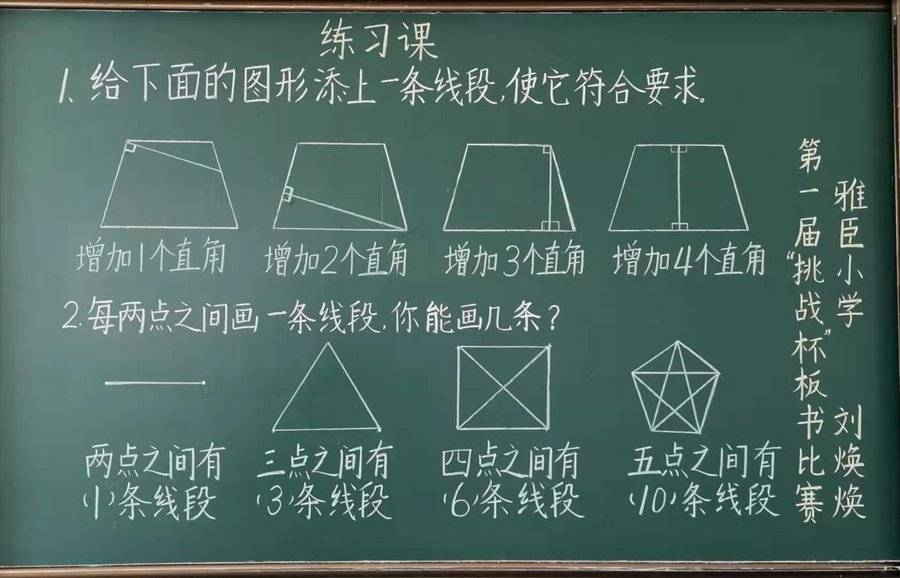 练习课
1、给下面的图形添上一条线段,使它符合要求。
增加1个直角
增加2个直角
增加3个直角
增加4个直角
2.每两点之间画一条线段,你能画几条?
两点之间有
(1)条线段
三点之间有
(3)条线段
四点之间有
(6)条线段
五点之间有
(10)条线段
第一届“挑战杯”板书比赛
雅臣小学 刘焕焕